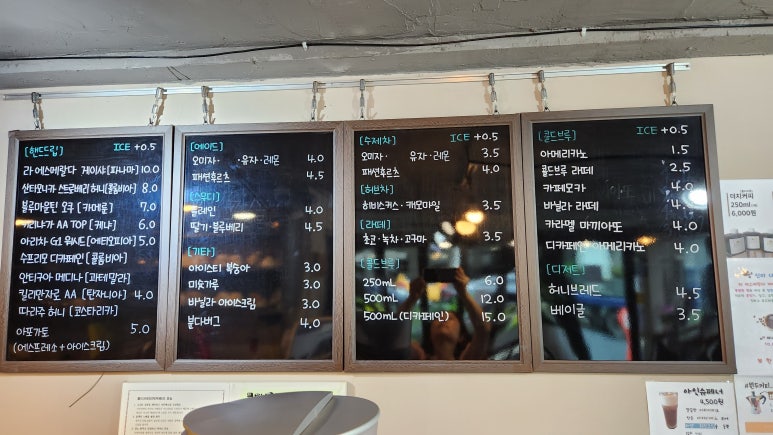 [핸드드립] ICE +0.5
라 에스메랄다 게이샤[파나마] 10.0
산타모니카 스트로베리 허니[콜롬비아] 8.0
블루마운틴 오쿠 [카메룬] 7.0
키리냐가 AA TOP [케냐] 6.0
아리차 G1 워시드[에티오피아] 5.0
수프리모 디카페인 [콜롬비아]
안티구아 메디나 [과테말라]
킬리만자로 AA [탄자니아] 4.0
따라주 허니 [코스타리카]
아포가토 5.0
(에스프레소 + 아이스크림)
[에이드]
오미자 · 유자 · 레몬 4.0
패션후르츠 4.5
[스무디]
플레인 4.0
딸기 · 블루베리 4.5
[기타]
아이스티 복숭아 3.0
미숫가루 3.0
바닐라 아이스크림 3.0
붙다버그 4.0
[수제차] ICE +0.5
오미자 · 유자 · 레몬 3.5
패션후르츠 4.0
[허브차]
히비스커스 · 캐모마일 3.5
[라떼]
초코 · 녹차 · 고구마 3.5
[콜드브루]
250mL 6.0
500mL 12.0
500mL (디카페인) 15.0
[콜드브루] ICE +0.5
아메리카노 1.5
콜드브루 라떼 2.5
카페모카 4.0
바닐라 라떼 4.0
카라멜 마끼아또 4.0
디카페인 아메리카노 4.0
[디저트]
허니브레드 4.5
베이글 3.5
더치커피
250ml
6,000원
아인슈페너
4,500원